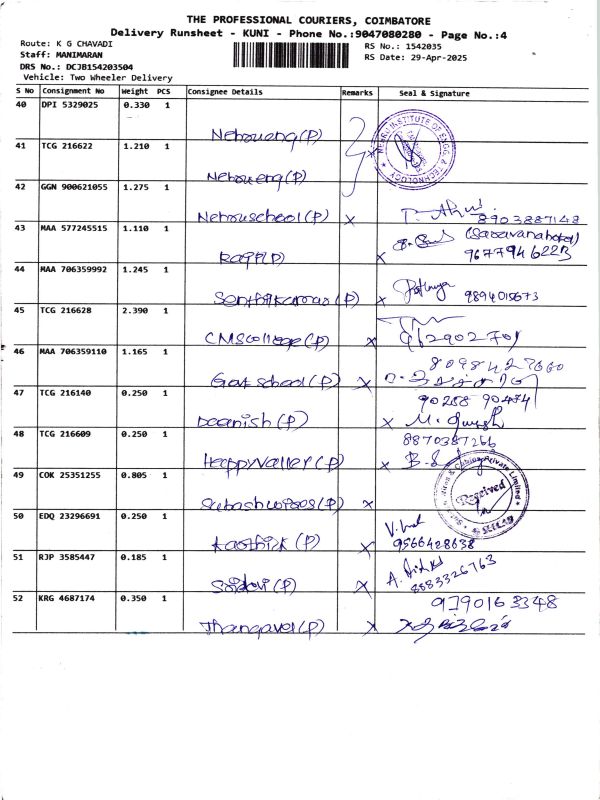 THE PROFESSIONAL COURIERS, COIMBATORE
Delivery Runsheet - KUNI - Phone No.:9047080280 - Page No.:4
Route: K G CHAVADI
RS No.: 1542035
Staff: MANIMARAN
RS Date: 29-Apr-2025
DRS No.: DCJB154203504
Vehicle: Two Wheeler Delivery
S No Consignment No Weight PCS Consignee Details Remarks Seal & Signature
40 DPI 5329025 0.330 1
Nehrueng(P)
41 TCG 216622 1.210 1
NEHRU INSTITUTE OF ENGG & TECHNOLOGY
Nehrueng(P)
42 GGN 900621055 1.275 1
Nehruschool(P) x
8903887148
43 MAA 577245515 1.110 1
(Saravanahotel)
9677946223
x
44 MAA 706359992 1.245 1
Senthilkumar(P) x
9894015673
45 TCG 216628 2.390 1
CMScollege(P) x
46 MAA 706359110 1.165 1
8098427660
Govt school(P) x
47 TCG 216140 0.250 1
90258 90434
Deanish(P) x
48 TCG 216609 0.250 1
8870387266
Happyvalley(P) x
49 COK 25351255 0.805 1
Private Limited
Received
Subashwires(P) x
50 EDQ 23296691 0.250 1
Karthik(P) x
9566428638
51 RJP 3585447 0.185 1
8883326763
x
52 KRG 4687174 0.350 1
9790163348
Thangavel(P) x